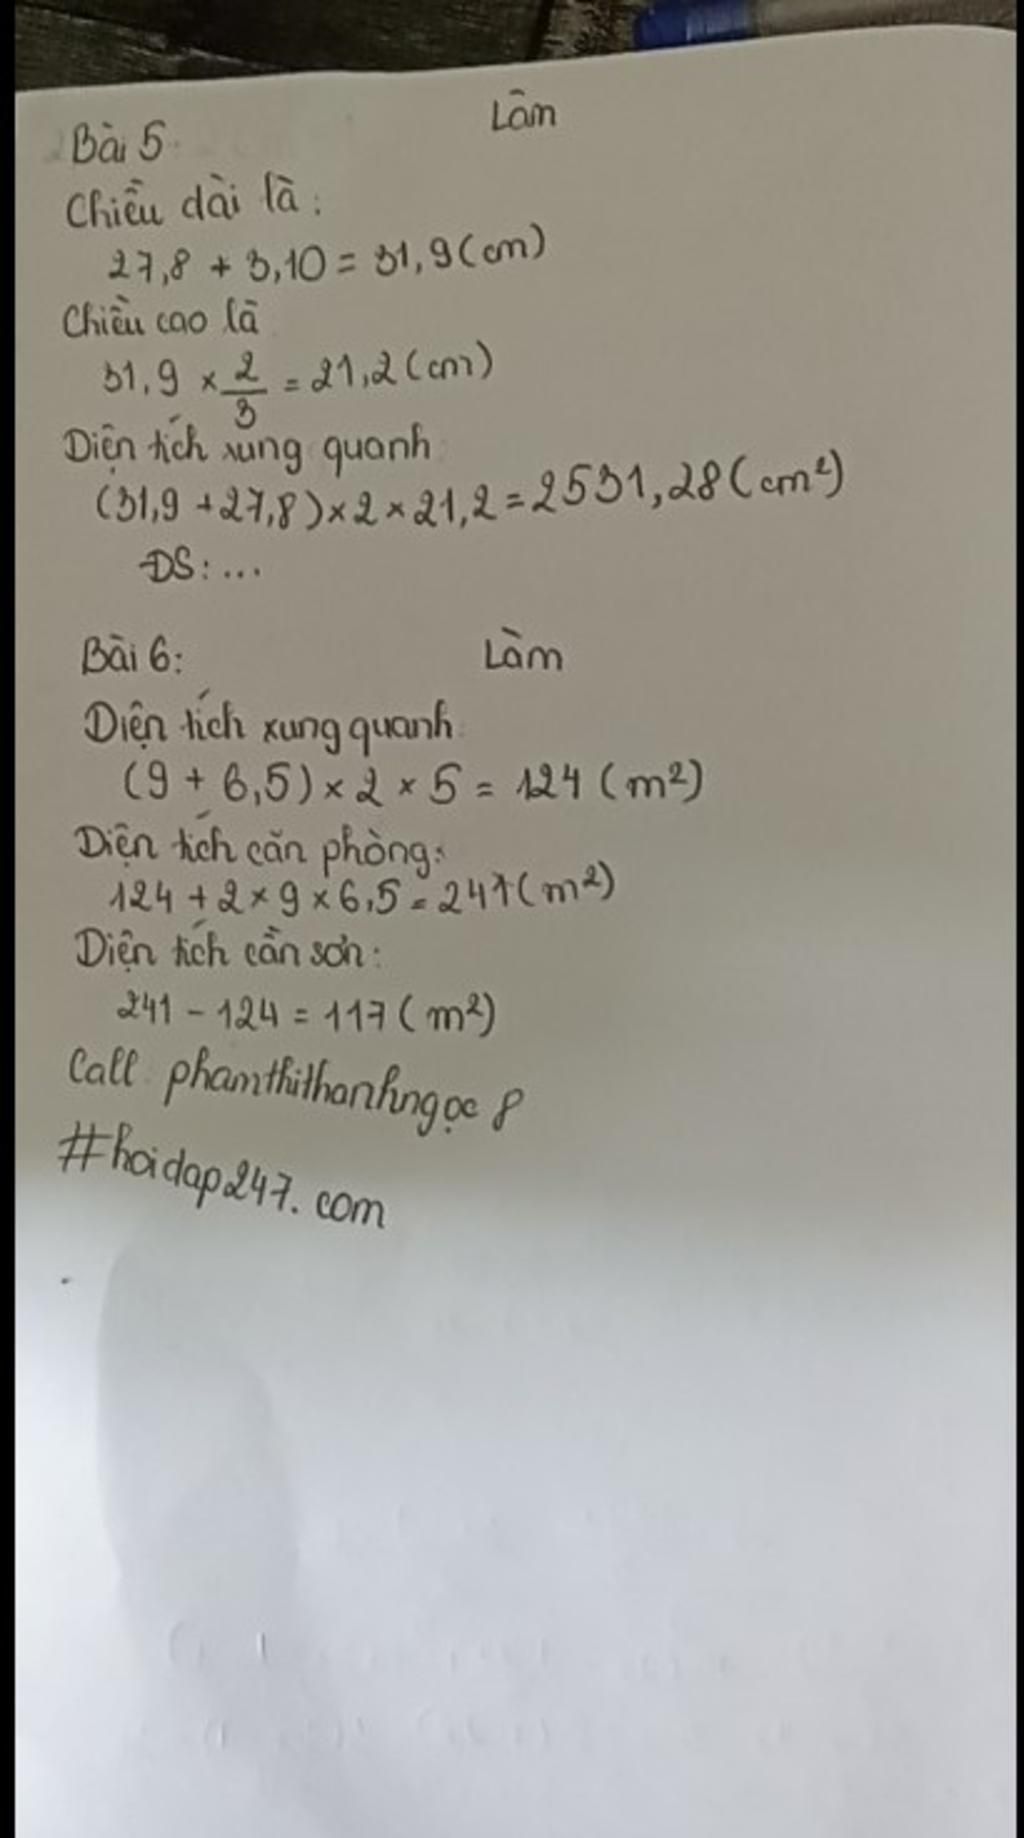 Làm
Bài 5
Chiều dài là:
27,8 + 3,10 = 31,9 (cm)
Chiều cao là
31,9 × 2/3 = 21,2 (cm)
Diện tích xung quanh
(31,9 + 27,8) × 2 × 21,2 = 2531,28 (cm²)
ĐS: ...
Bài 6: Làm
Diện tích xung quanh
(9 + 6,5) × 2 × 5 = 124 (m²)
Diện tích căn phòng:
124 + 2 × 9 × 6,5 = 241 (m²)
Diện tích cần sơn:
241 - 124 = 117 (m²)
Call phamthithanhngọc 8
#hoidap247.com